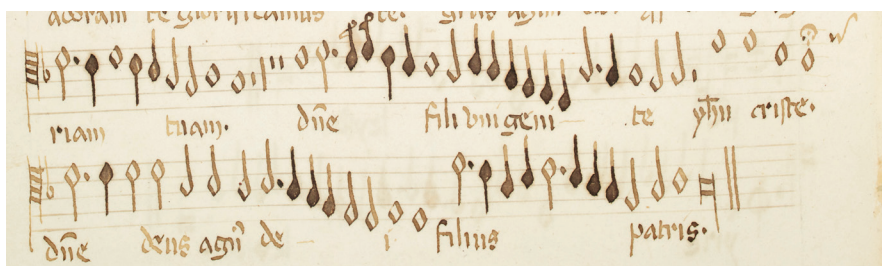 adoram te glorificamus te. gr̃as agim
riam tuam. dn̄e fili vnigeni te yh̄u criste.
dn̄e deus agn̄ de i filius patris.